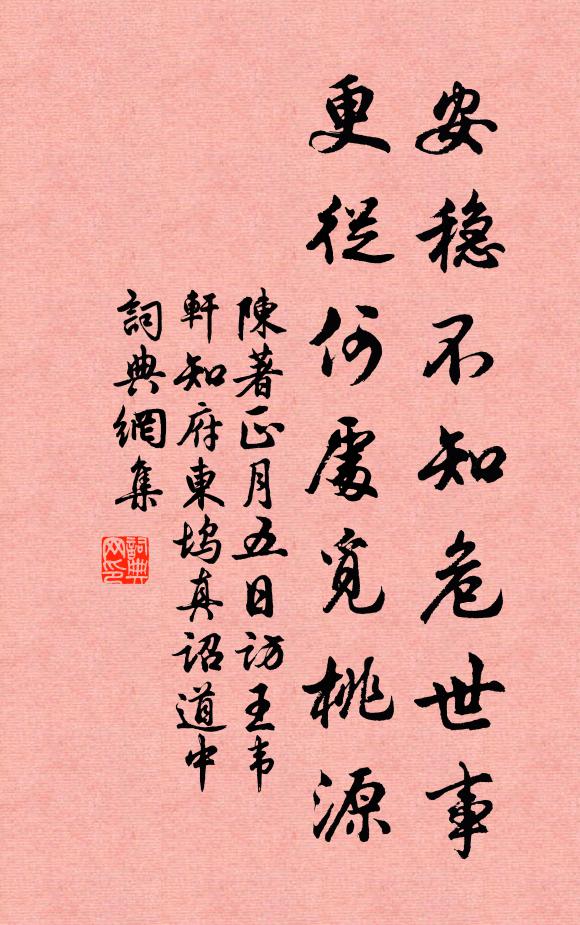 安穏不知危世事
更從何處覓桃源
陳著正月五日訪王韦
軒知府東塢真詔道中
詞典網集
詞典网印